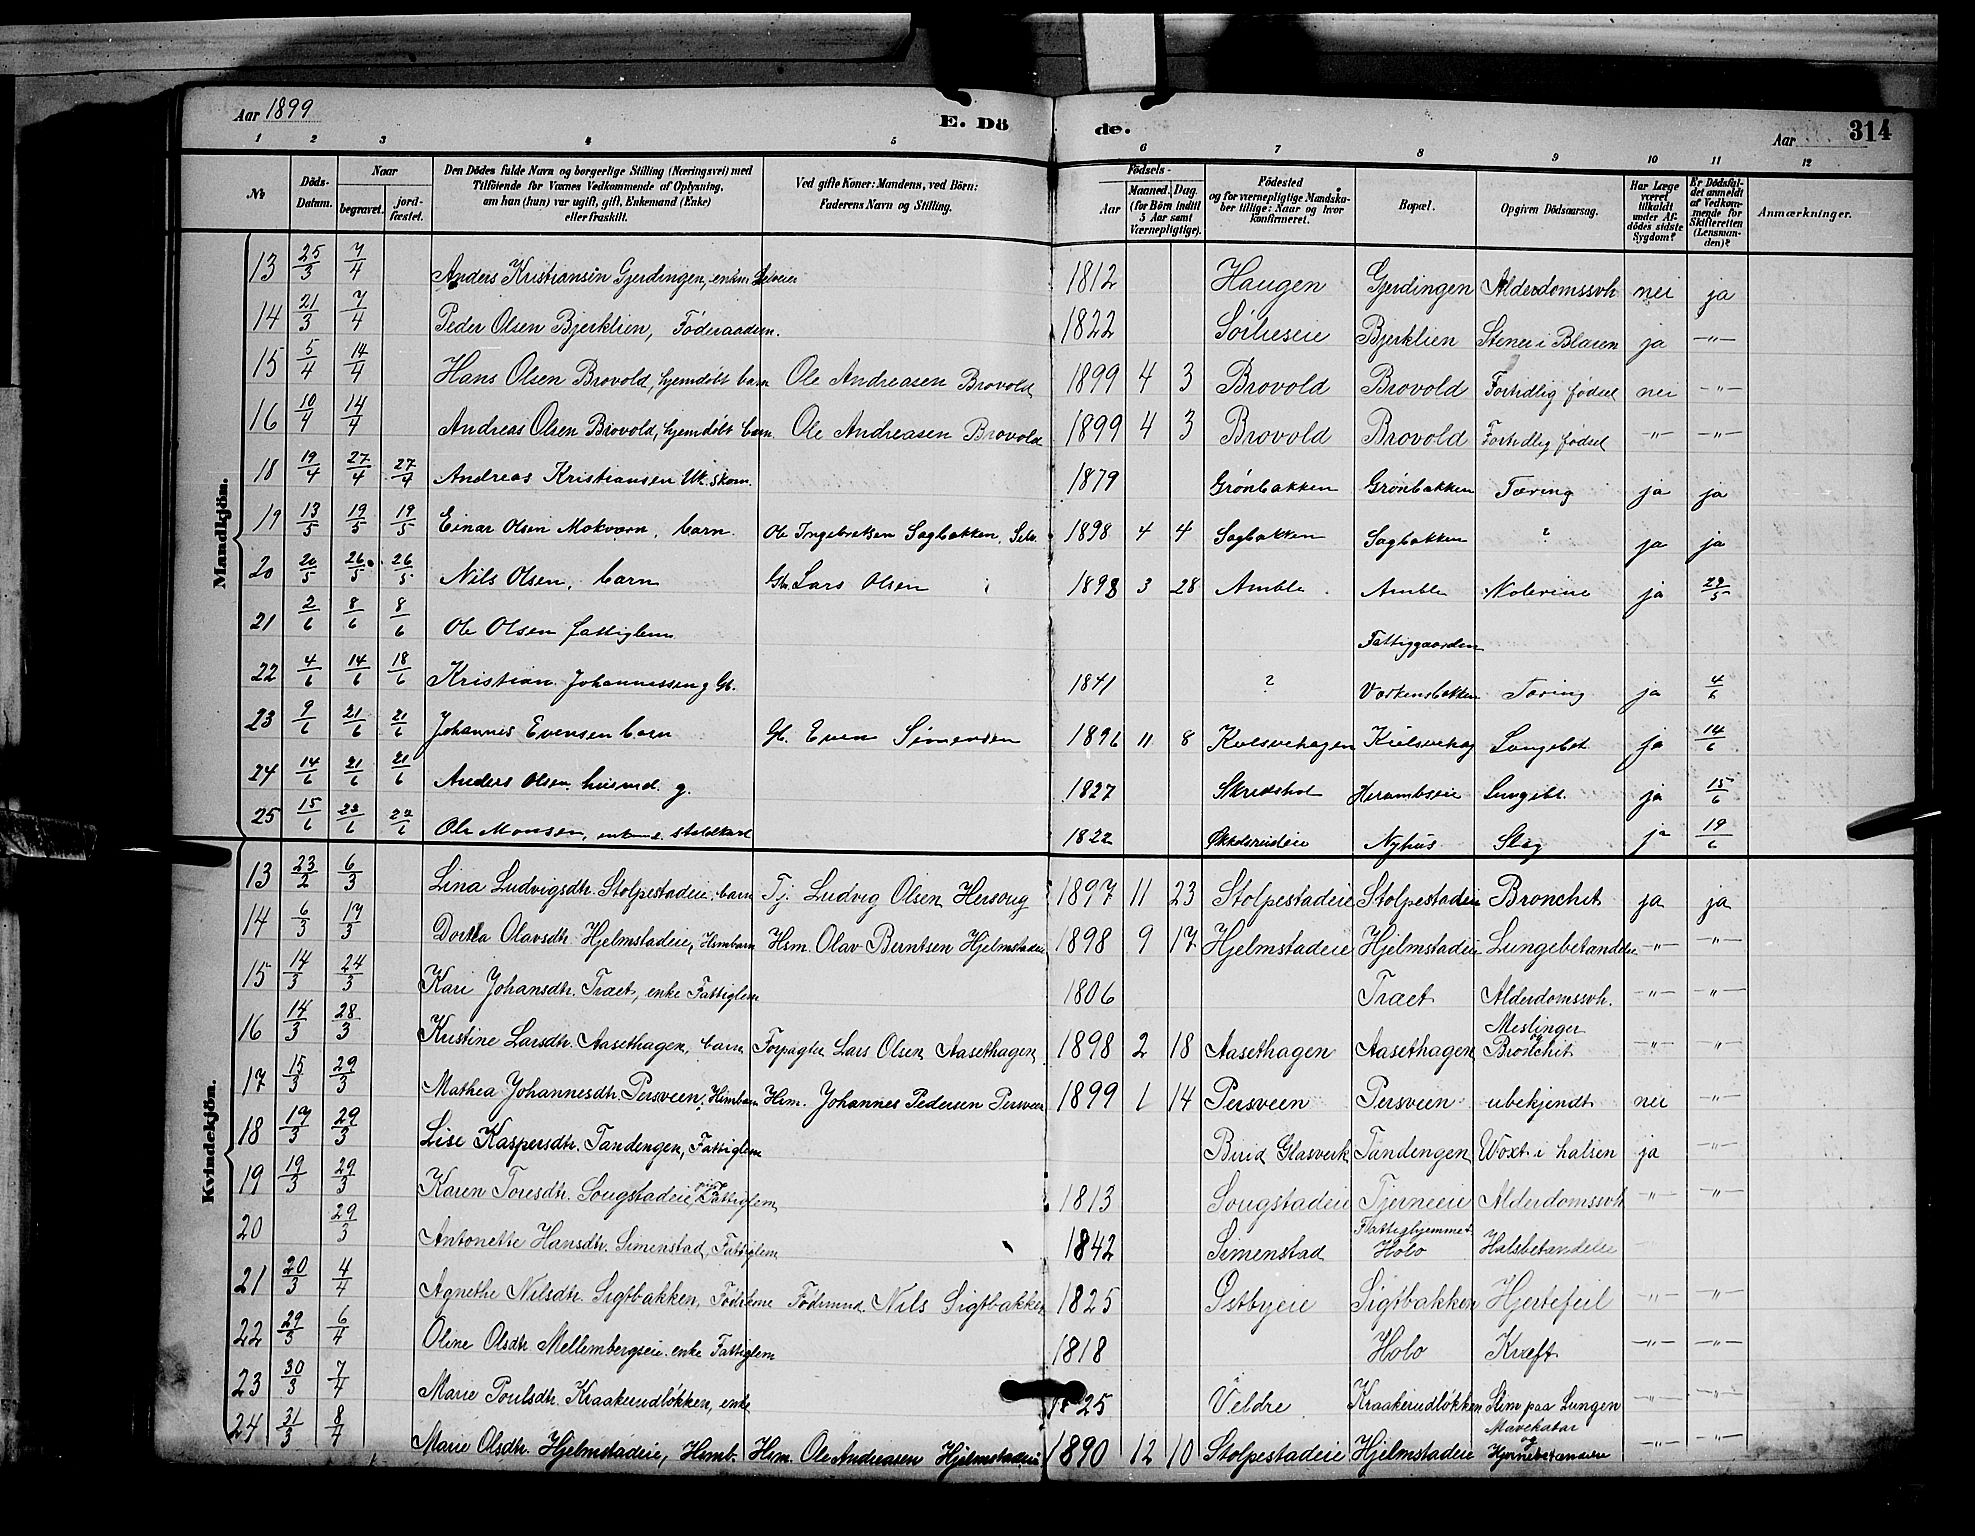 Aar 1899 E. Dö de. Aar 314
1 2 3 4 5 6 7 8 9 10 11 12
No Döds-Datum. Naar begravet. jordfæstet. Den Dödes fulde Navn og borgerlige Stilling (Næringsvei) med Tilföiende for Voxnes Vedkommende af Oplysning, om han (hun) var ugift, gift, Enkemand (Enke) eller fraskilt. Ved gifte Koner: Mandens, ved Börn: Faderens Navn og Stilling. Födsels- Aar Maaned. Dag. (for Börn indtil 5 Aar samt Værnepligtige). Födested og for værnepligtige Mandskaber tillige: Naar og hvor konfirmeret. Bopæl. Opgiven Dödsaarsag. Har Læge været tilkaldt under Afdödes sidste Sygdom? Er Dödsfaldet anmeldt af Vedkommende for Skifteretten (Lensmanden)? Anmærkninger.
Mandkjön.
13 25/3 7/4 Anders Kristiansen Gjerdingen, enkm. Selveier 1812 Haugen Gjerdingen Alderdomssvh nei ja
14 21/3 7/4 Peder Olsen Bjerklien, Föderaadsm. 1822 Sörlieseie Bjerklien Stener i Blæren ja -"-
15 5/4 14/4 Hans Olsen Brovold, hjemdöbt barn Ole Andreasen Brovold 1899 4 3 Brovold Brovold Fortidlig födsel nei -"-
16 10/4 14/4 Andreas Olsen Brovold, hjemdöbt barn Ole Andreasen Brovold 1899 4 3 Brovold Brovold Fortidlig födsel -"- -"-
18 19/4 27/4 27/4 Andreas Kristiansen Uk. skom. 1879 Grönbakken Grönbakken Tæring ja ja
19 13/5 19/5 19/5 Einar Olsen Mokværn, barn. Ole Ingebretsen Sagbakken, Selv. 1898 4 4 Sagbakken Sagbakken ? ja ja
20 20/5 26/5 26/5 Nils Olsen, barn Gb. Lars Olsen 1898 3 28 Amble Amble Kolerine ja 29/5
21 2/6 8/6 8/6 Ole Olsen fattiglem Fattiggaarden
22 4/6 14/6 18/6 Kristian Johannessen g Gb. 1841 ? Tæring ja 4/6
23 9/6 21/6 21/6 Johannes Evensen barn Gb. Even Simensen 1896 11 8 Kulsvehagen Kulsvehag Lungebet ja 14/6
24 14/6 21/6 21/6 Anders Olsen husmd. g. 1827 Skredshol Lungebt. ja 15/6
25 15/6 22/6 22/6 Ole Monsen, enkem. staldkarl 1822 Nyhus Slag ja 19/6
Kvindekjön.
13 23/2 6/3 Lina Ludvigsdtr. Stolpestadeie, barn Tj. Ludvig Olsen Hersoug 1897 11 23 Stolpestadeie Stolpestadeie Bronchit ja ja
14 6/3 17/3 Dortea Olavsdtr. Hjelmstadeie, Hsmbarn Hsm. Olav Berntsen Hjelmstadeie 1898 9 17 Hjelmstadeie Hjelmstadeie Lungebetændelse -"- -"-
15 14/3 24/3 Kari Johansdtr. Træet, enke Fattiglem 1806 Træet Alderdomssvh. -"- -"-
16 14/3 28/3 Kristine Larsdtr. Aasethagen, barn Forpagter Lars Olsen Aasethagen 1898 2 18 Aasethagen Aasethagen Meslinger og Bronchit -"- -"-
17 15/3 29/3 Mathea Johannesdtr. Persveen, Hsmbarn Hsm. Johannes Pedersen Persveen 1899 1 14 Persveen Persveen ubekjendt nei -"-
18 17/3 29/3 Lise Kaspersdtr. Tandengen, Fattiglem Birid Glasverk Tandengen Voxt i halsen ja -"-
19 19/3 29/3 Karen Toresdtr. Sougstadeie, pige Fattiglem 1813 Sougstadeie Tjerneeie Alderdomssvh -"- -"-
20 29/3 Antonette Hansdtr. Simenstad, Fattiglem 1842 Simenstad Fattighjemmet Holo Halsbetændelse
21 20/3 4/4 Agnethe Nilsdtr. Sigtbakken, Föderkone Födermd. Nils Sigtbakken 1825 Ostbyeie Sigtbakken Hjertefeil -"- -"-
22 29/3 6/4 Oline Olsdtr Mellembergseie, enke Fattiglem 1818 Holo Kræft -"- -"-
23 30/3 7/4 Marie Poulsdtr. Kraakerudlökken, enke 1825 Veldre Kraakerudlökken Slim paa Lungen -"- -"-
24 31/3 8/4 Marie Olsdtr. Hjelmstadeie, Hsmb. Hsm. Ole Andreasen Hjelmstadeie 1890 12 10 Stolpestadeie Hjelmstadeie Mavekatar og Hjernebetændelse -"- -"-